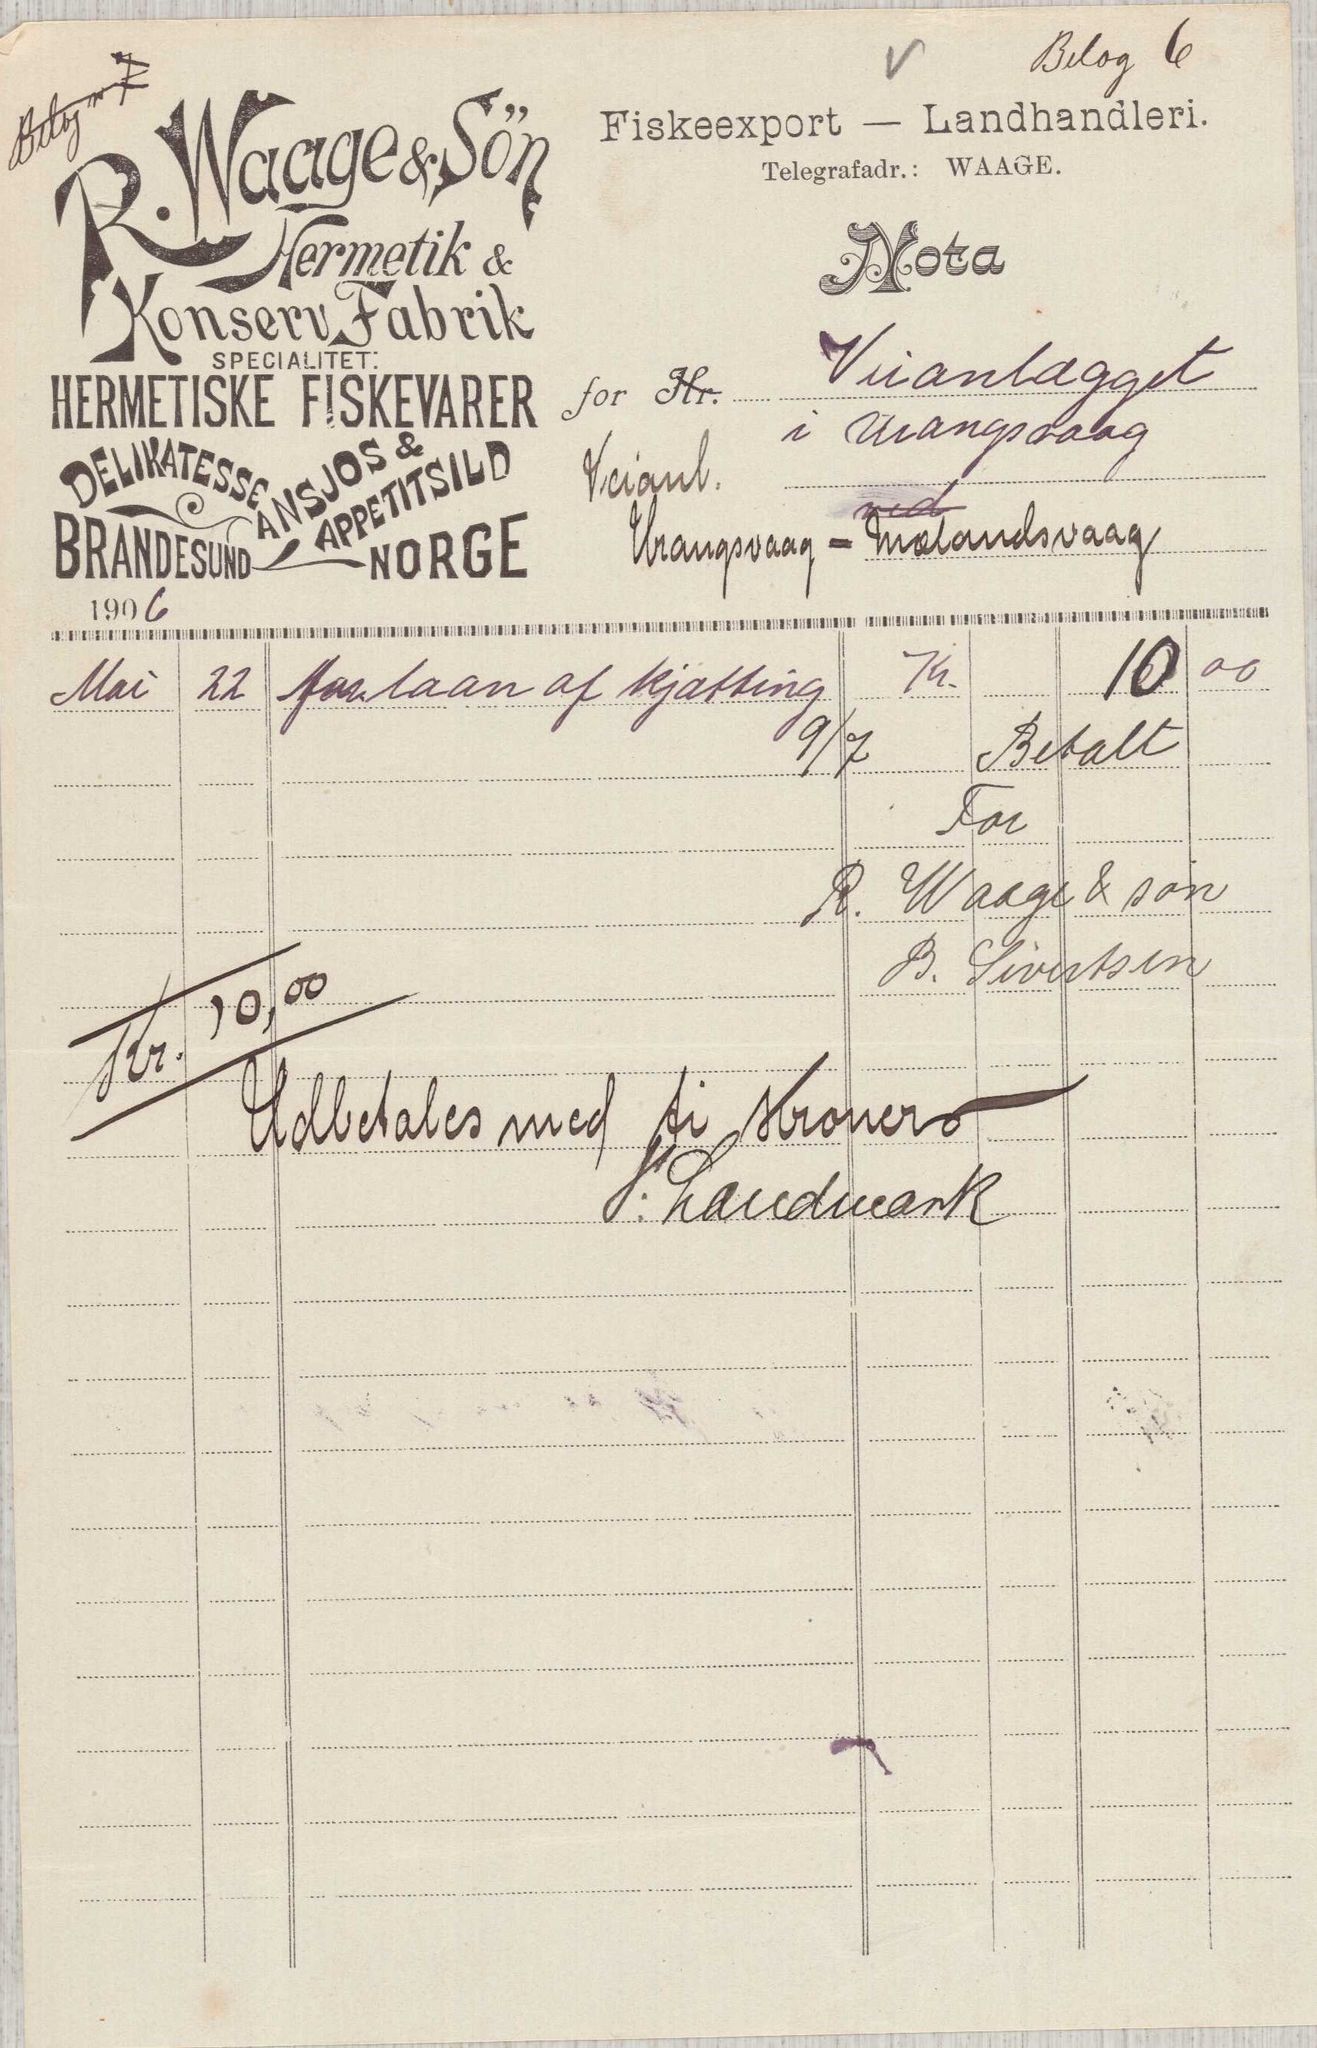 Bilag nr 7
Bilag 6
R. Waage & Sön
Hermetik &
Konserv. Fabrik
SPECIALITET:
HERMETISKE FISKEVARER
DELIKATESSE ANSJOS &
APPETITSILD
BRANDESUND NORGE
Fiskeexport — Landhandleri.
Telegrafadr.: WAAGE.
Nota
for Hr. Veianlægget
i Vrangsvaag
Veianl.
ved
Vrangsvaag = Mølandsvaag
1906
Mai 22 for laan af kjætting Kr. 10 00
9/7 Betalt
For
R. Waage & søn
B. Sivertsen
Kr. 10,00
Udbetales med ti kroner
Landmark